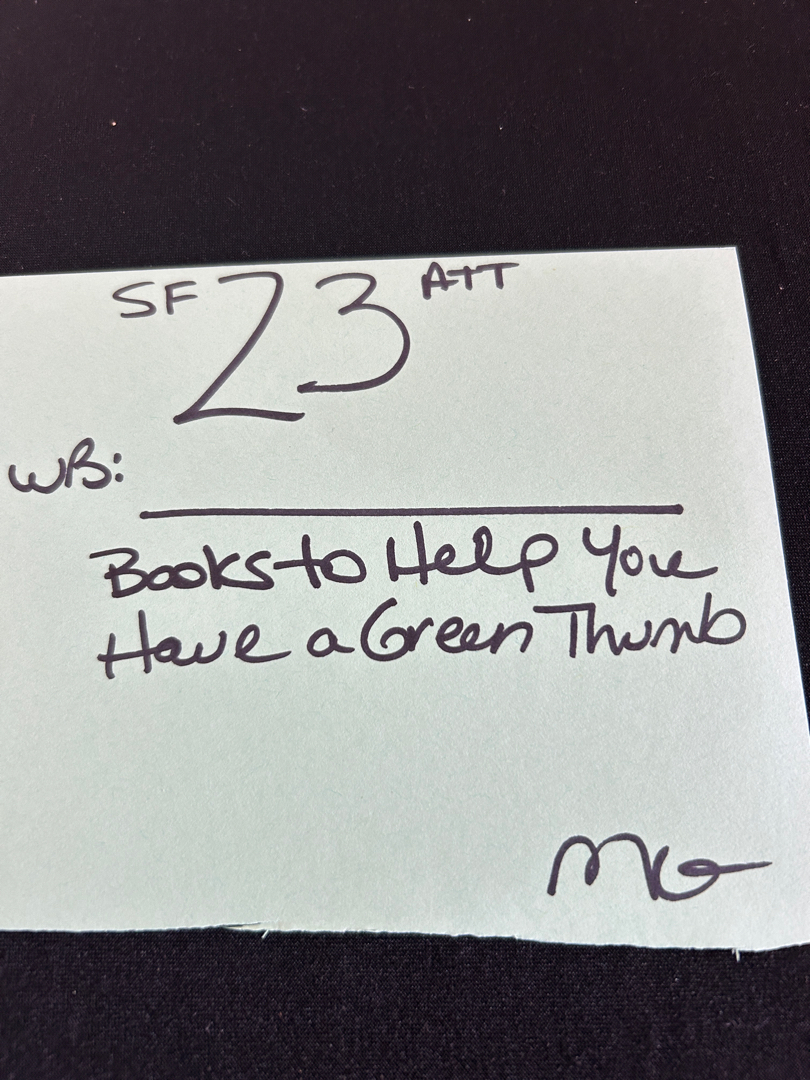 SF 23 ATT
WB:
Books to Help You
Have a Green Thumb
MG